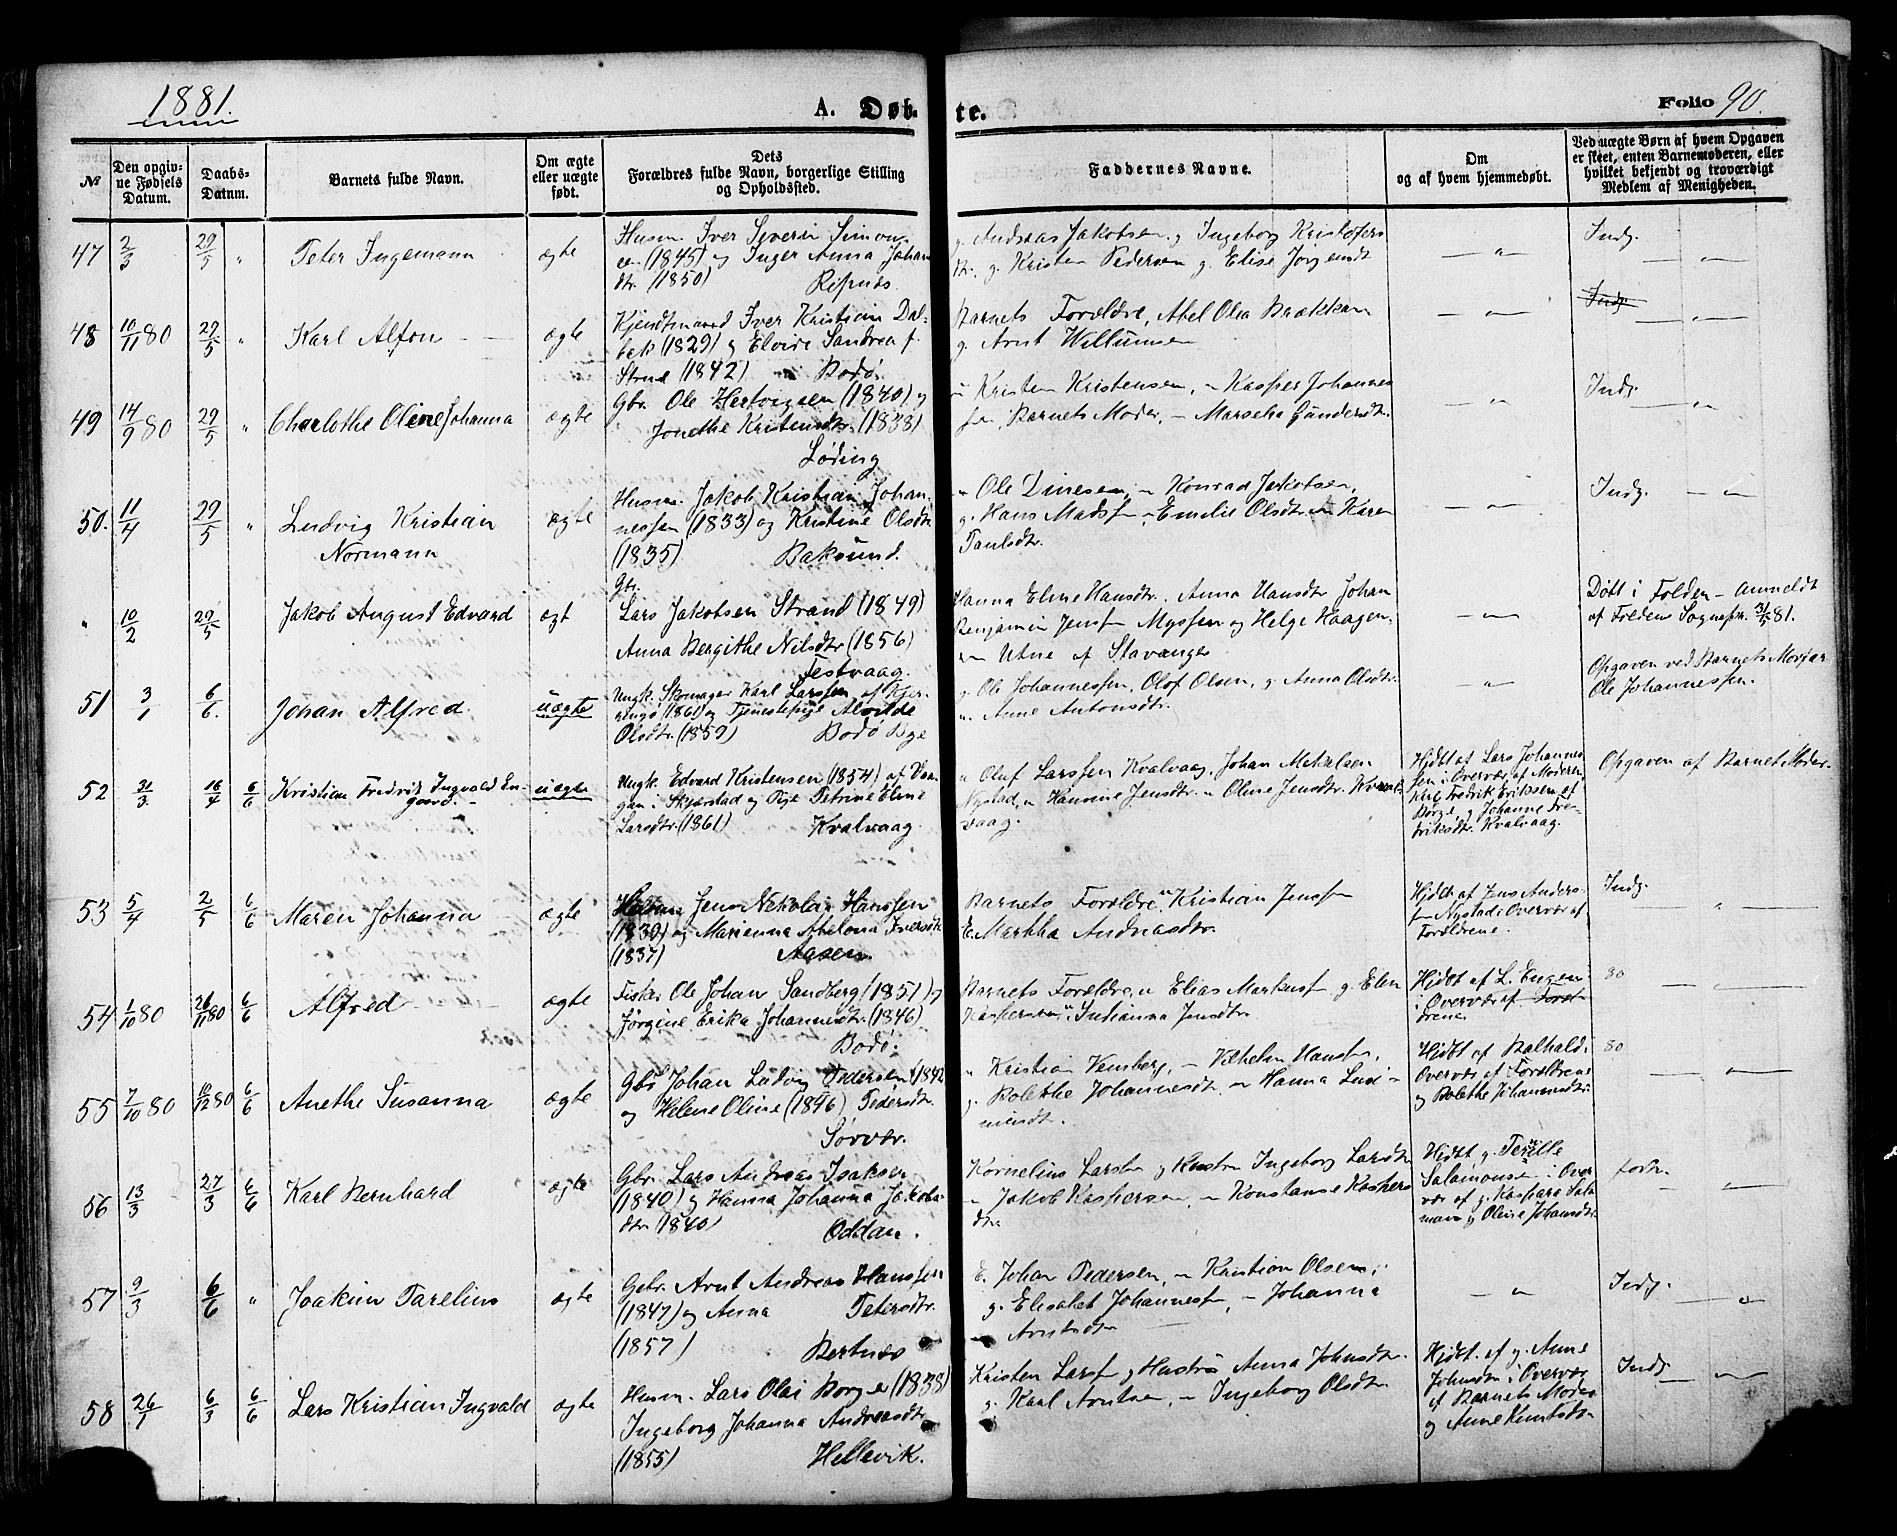 1881.
A. Døbte.
Folio 90.
№
Den opgivne Fødsels Datum.
Daabs-Datum.
Barnets fulde Navn.
Om ægte eller uægte født.
Dets Forældres fulde Navn, borgerlige Stilling og Opholdssted.
Faddernes Navne.
Om og af hvem hjemmedøbt.
Ved uægte Børn af hvem Opgaven er skeet, enten Barnemoderen, eller hvilket bekjendt og troværdigt Medlem af Menigheden.
47 2/3 29/5 " Peter Ingemann ægte
Husm. Iver Severin Simon-
sen (1845) og Inger Anna Johan
dtr. (1850) Ripnæs
g. Andreas Jakobsen g. Ingeborg Kristofers
dtr. g. Kristen Pedersen g. Elise Jørgensdt
— " —
Indg. — " —
48 10/11 80 29/5 " Karl Alfon ægte
Kjendtmand Iver Kristian Dal-
bak (1829) og Elvire Sandrea f.
Strud (1842) Bodø.
Barnets Forældre, Abel Olea Brækkan
g. Arnt Willumsen
— " —
Indg — " —
49 14/9 80 29/5 " Charlothe Oline Johanna ægte
Gbr. Ole Hertvigsen (1840) og
Jonethe Kristensdtr. (1838)
Løding
" Kristen Kristensen, " Kasper Johannes
sen, Barnets Moder, – Marselia Gundersdt.
— " —
Indg — " —
50. 11/4 29/5 " Ludvig Kristian
Normann ægte
Husm. Jakob Kristian Johan-
nessen (1833) og Kristine Olsdtr
(1835) Baksund.
" Ole Dinesen, " Konrad Jakobsen,
g. Hans Madss. " Emilie Olsdtr. " Karen
Paulsdtr.
— " —
Indg. — " —
" 10/2 29/5 Jakob August Edvard ægt
Gbr.
Lars Jakobsen Strand (1849)
Anna Bergithe Nilsdtr (1856)
Festvaag.
Hanna Eline Hansdtr. Anna Hansdtr Johan
Benjamin Jenss. Myssen og Helge Haagen-
sen Utne af Stavanger
— " —
Døbt i Folden – anmeldt
af Foldens Sognepr. 31/5 81.
51 3/1 6/6. Johan Alfred uægte
Ungk. Skomager Karl Larssen af Kjer-
ringø (1861) og Tjenestepige Alvilde
Olsdtr. (1859) Bodø By
g. Ole Johannessen, Olof Olsen, g. Anna Olsdtr.
u. Anne Antonsdtr.
— " —
Opgaven ved Barnets Morfar
Ole Johannessen.
52 31/3 16/4 6/6 Kristian Fredrik Ingvald En-
gaard. uægte
Ungk. Edvard Kristensen (1854) af Vaa-
gan i Skjærstad og Pige Petrine Eline
Larsdtr. (1861) Kvalvaag
" Oluf Larssen Kvalvaag, Johan Mikalsen
Nystad, " Hannine Jensdtr. " Oline Jensdtr. Kval-
vaag.
Hjdbt af Lars Johannes
sen i Overvær af Moderen,
Karl Fredrik Eriksen af
Børge, og Johanne Fre-
driksdtr. Kvalvaag.
Opgaven af Barnets Moder.
53 5/4 2/5 6/6 Maren Johanna ægte
Husm Jens Nikolai Hanssen
(1830) og Marianna Abelona Iversdtr
(1837) Aasen
Barnets Forældre, " Kristian Jenss.
E. Martha Andreasdtr.
Hjdbt af Jens Anders-
sen Nystad i Overvær af
Forældrene.
Indg. — " —
54 1/10 80 26/11 80 6/6 Alfred ægte
Fisker Ole Johan Sandberg (1851) og
Jørgine Erika Johannesdtr. (1846)
Bodø.
Barnets Forældre, u Elias Markuss. g. Elen
Kaspersen, " Indianna Jensdtr.
Hjdbt af L. Engen
i Overvær af Foræl-
drene
80 — " —
55 7/10 80 10/12 80 6/6 Anethe Susanna ægte
Gbr Johan Ludvig Pedersen (1842
og Helene Oline (1846) Pedersdtr.
Sørvær.
" Kristian Vensberg, – Vilhelm Hansen,
g. Bolethe Johannesdtr. " Hanna Lud-
Hjdbt af
Overvær af Forældrene
og Bolethe Johannesdtr.
80 — " —
56 13/3 27/3 6/6 Karl Bernhard ægte
Gbr. Lars Andreas Isaksen
(1840) og Hanna Johanna Jakobs-
dtr (1840) Oddan.
Kornelius Larsen og Hustru Ingeborg Larsdtr
– Jakob Kaspersen, – Konstanse Kaspers
dtr.
Hjdbt g. Pernille
Salamonsen i Over
vær af g. Kaspara Sala
mons. og Oline Johansdtr.
— " —
57 9/3 6/6 " Joakim Parelius ægte
Gbr. Arnt Andreas Hanssen
(1847) og Anna Petersdtr.
(1857) Bertnæs
E. Johan Pedersen, " Kristian Olsen,
g. Elisabet Johanness. – Johanna
Arntsdtr
— " —
Indg. — " —
58 26/1 6/3 6/6 Lars Kristian Ingvald ægte
Husm. Lars Olai Borge (1838)
Ingeborg Johanna Andreasdtr
(1855) Hellevik.
Kristen Larss. og Hustru Anna Johnsdtr.
g. Karl Arntsen, – Ingeborg Olsdtr
Hjdbt. af g. Anne
Johnsen i Overvær
af Barnets Moder
og Anne Knutsdtr.
Indg. — " —